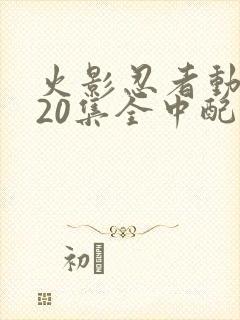 火影忍者動
20集全中配
初